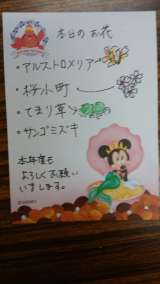 本日のお花
・アルストロメリア
・桜小町
・てまり草
・サンゴミズキ
本年度も
よろしくお願い
いたします。